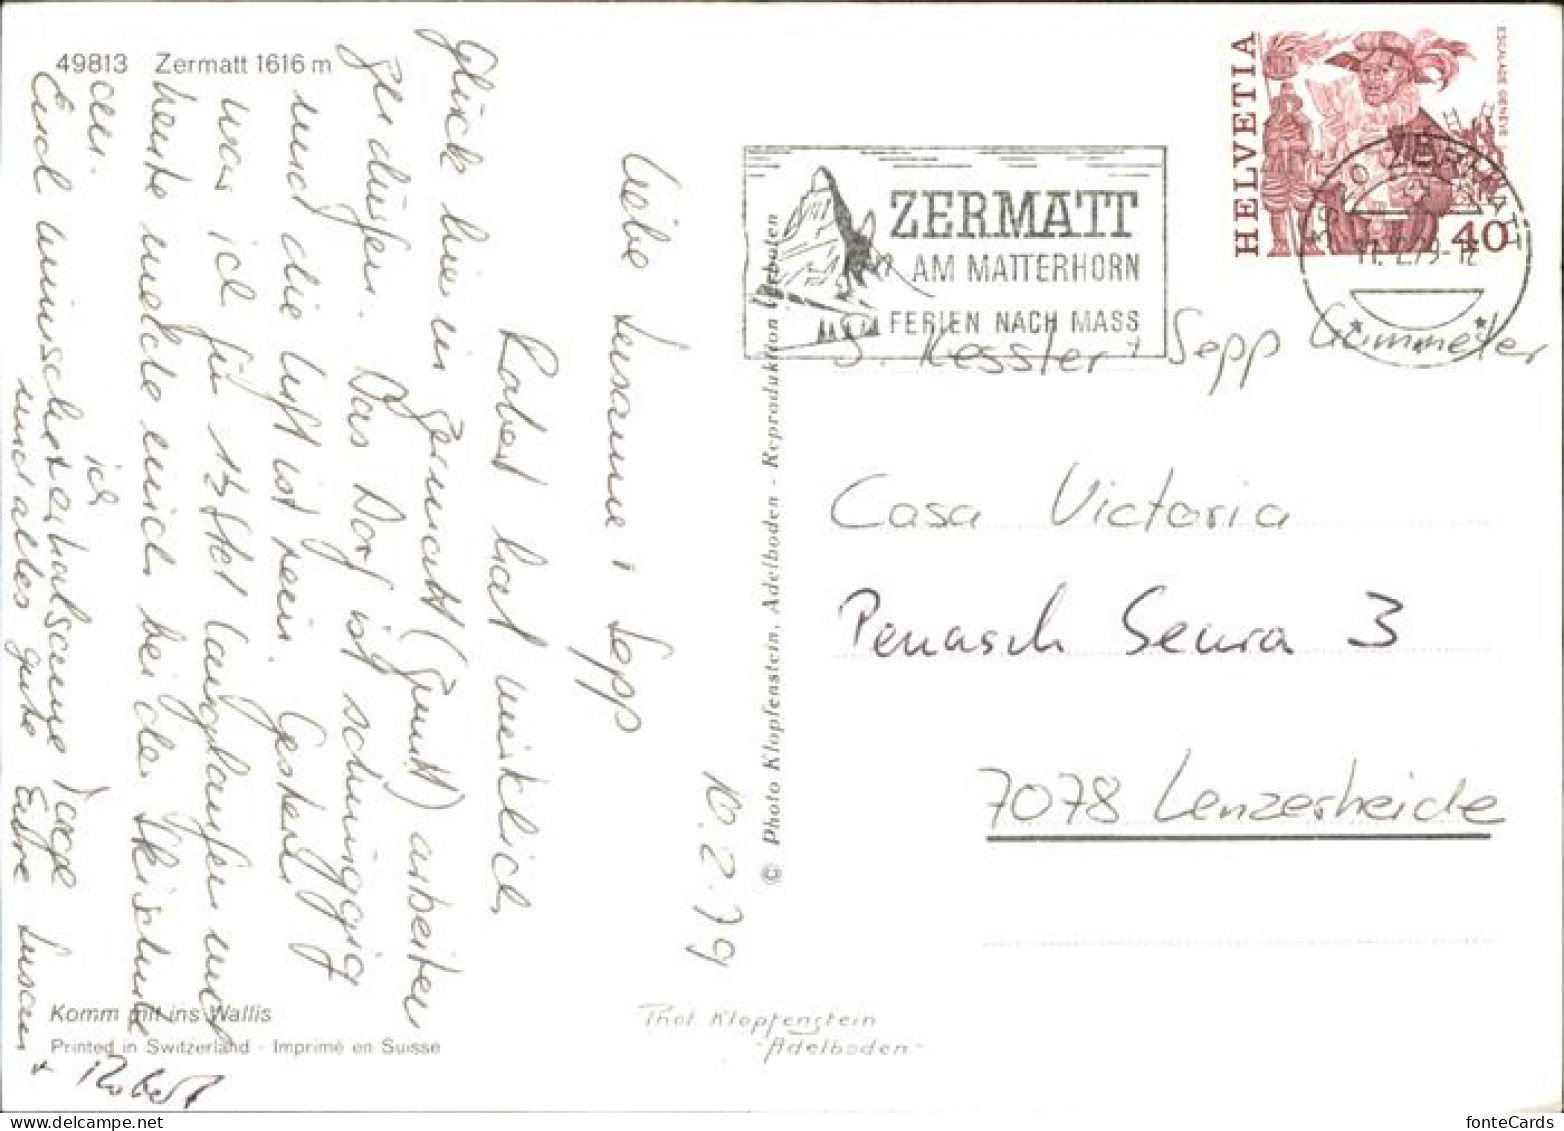 49813 Zermatt 1616 m
10.2.79
Liebe Susanne + Sepp
Robert hat wirklich
Glück hier in Zermatt (Gunitt) arbeiten
zu dürfen. Das Dorf ist schnuggig
und die Luft ist rein. Gestern
war ich für 1 1/2 Std langlaufen und
heute melde mich bei der Skischule
an.
ich
Euch wünsche erholsame Tage
und alles gute Eure Susann
+ Robert
Komm mit ins Wallis
Printed in Switzerland - Imprimé en Suisse
© Photo Klopfenstein, Adelboden - Reproduktion verboten
Phot. Klopfenstein
"Adelboden"
ZERMATT
AM MATTERHORN
FERIEN NACH MASS
HELVETIA
ESCALADE GENÈVE
40
3920 ZERMATT
11.2.79-12
S. Kessler + Sepp
Casa Victoria
Penasch Seura 3
7078 Lenzerheide
fonteCards